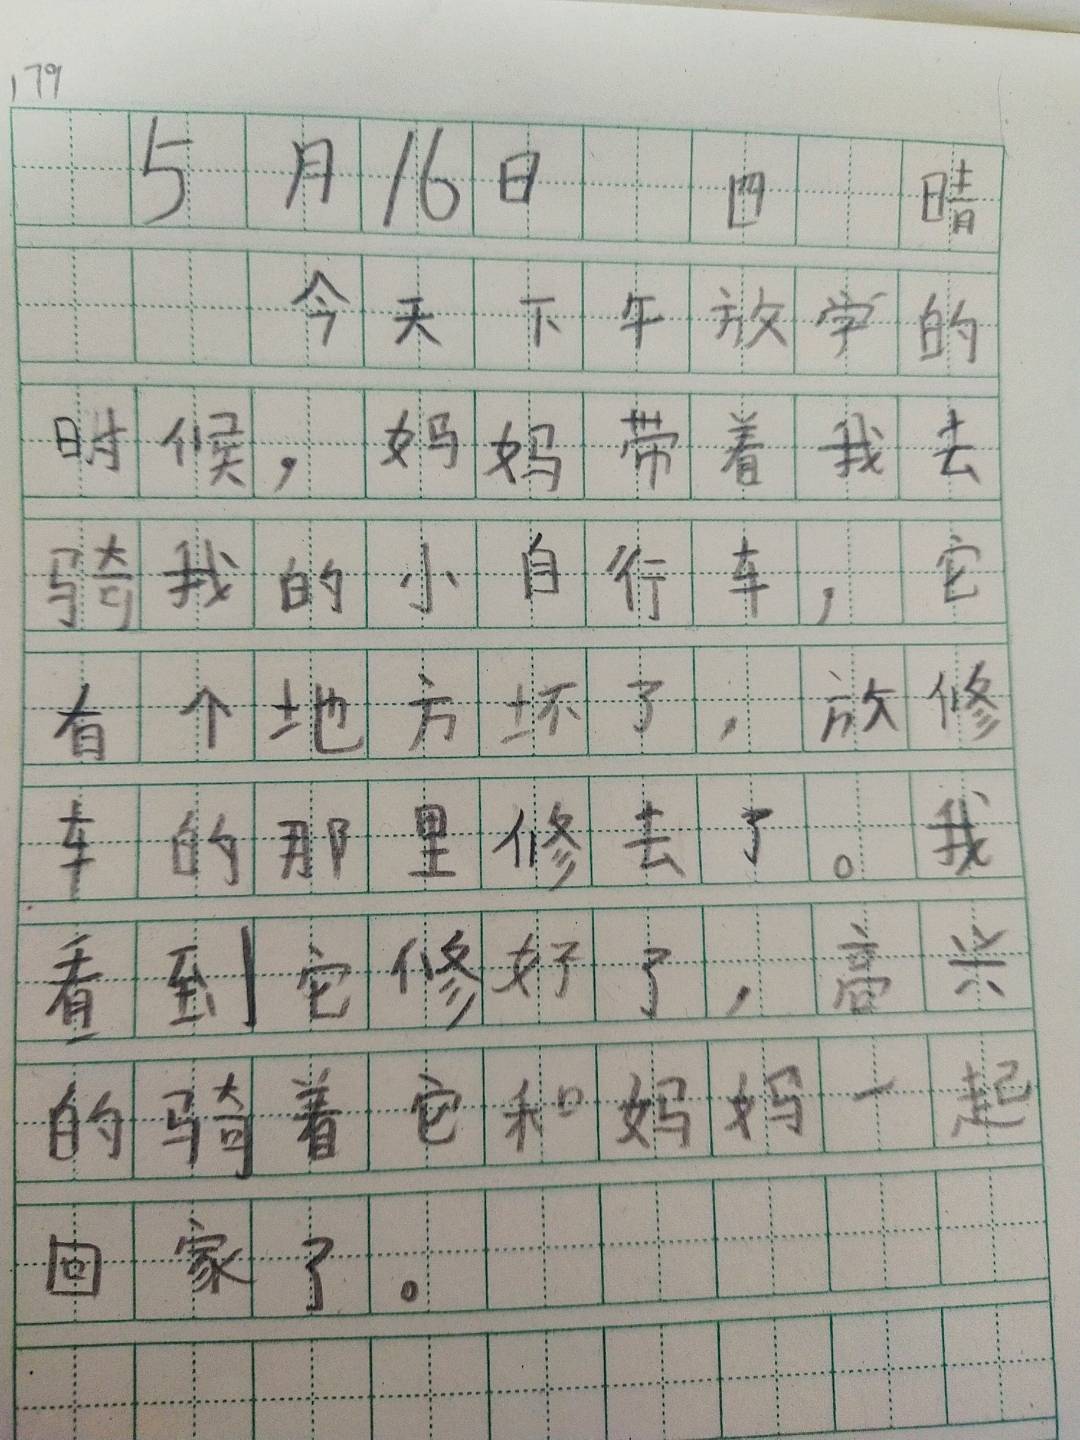 179
5月16日 四 晴
今天下午放学的
时候，妈妈带着我去
骑我的小自行车，它
有个地方坏了，放修
车的那里修去了。我
看到它修好了，高兴
的骑着它和妈妈一起
回家了。